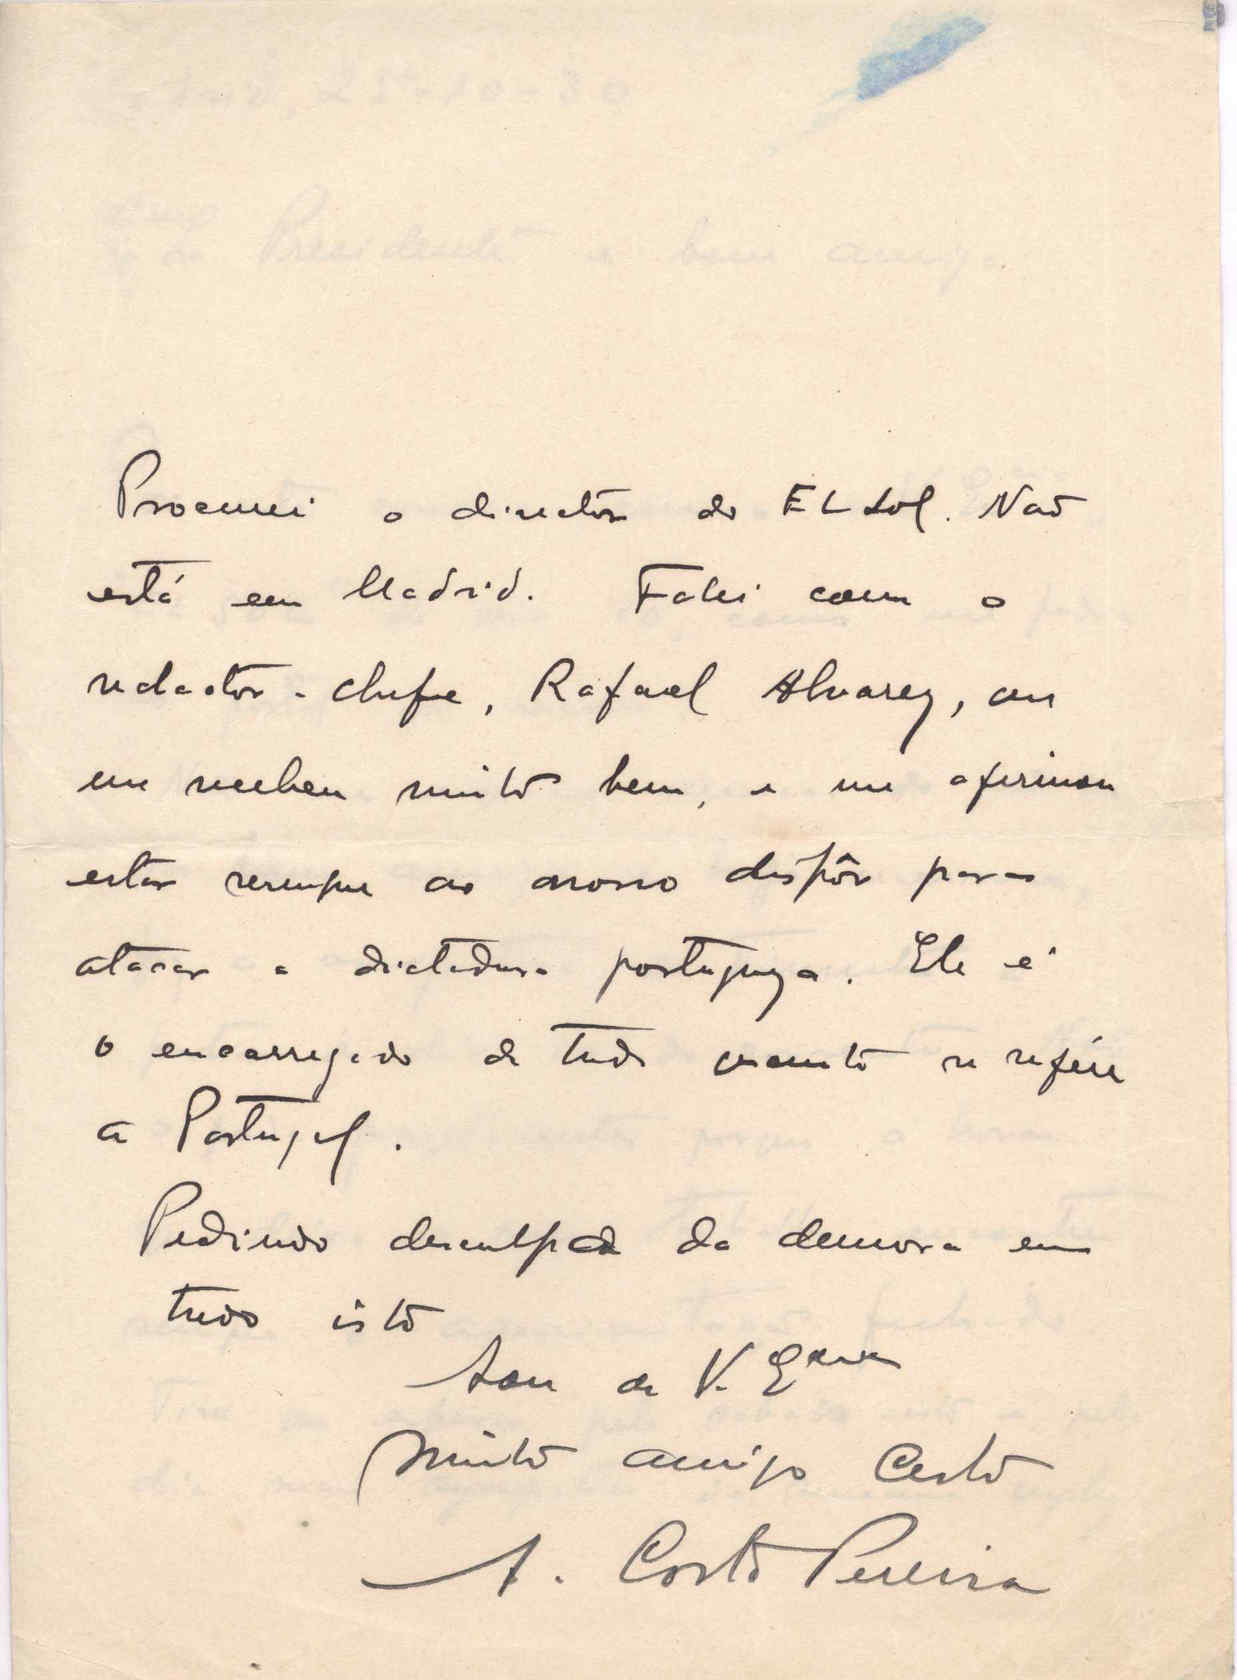 Procurei o director do El Sol. Não
está em Madrid. Falei com o
redactor-chefe, Rafael Alvarez, que
me recebeu muito bem, e me afirmou
estar sempre ao nosso dispôr para
atacar a dictadura portugueza. Ele é
o encarregado de tudo quanto se refére
a Portugal.
Pedindo desculpa da demora em
tudo isto
Sou de V. Exa
Muito amigo certo
A. Costa Pereira